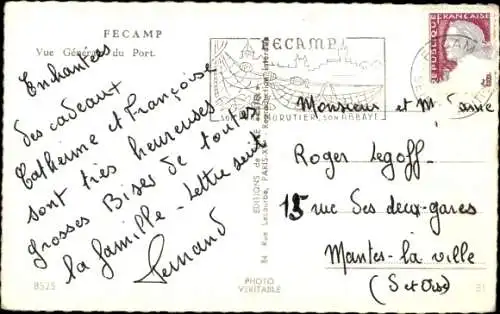 FECAMP
Vue Générale du Port.
Enchantées
des cadeaux
Catherine et Françoise
sont très heureuses
Grosses Bises de toute
la famille - Lettre suit
Fernand
8525
PHOTO
VERITABLE
84 Rue Lecourbe, PARIS-XV Reproduction
EDITIONS de
FECAMP
SON MORUTIER, SON ABBAYE
REPUBLIQUE FRANÇAISE
FECAMP
Monsieur et Madame
Roger Legoff
15 rue des deux-gares
Mantes-la ville
(S et Oise)